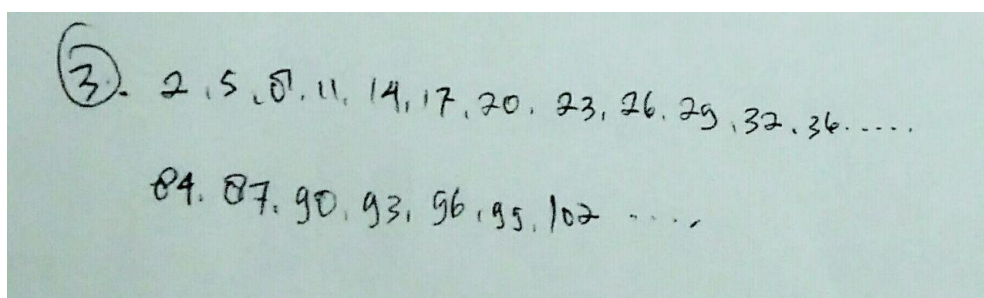 ③. 2, 5, 8, 11, 14, 17, 20. 23, 26. 29, 32, 36.....
84. 87. 90. 93, 96, 99. 102 ....